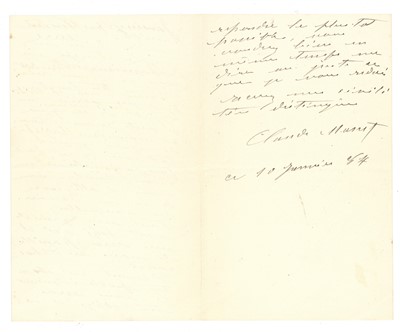 repondre le plus tot
possible, vous
voudrez bien en
même temps me
dire au juste ce
que je vous redois
recevez mes civili
tés distinguées
Claude Monet
ce 10 janvier 84